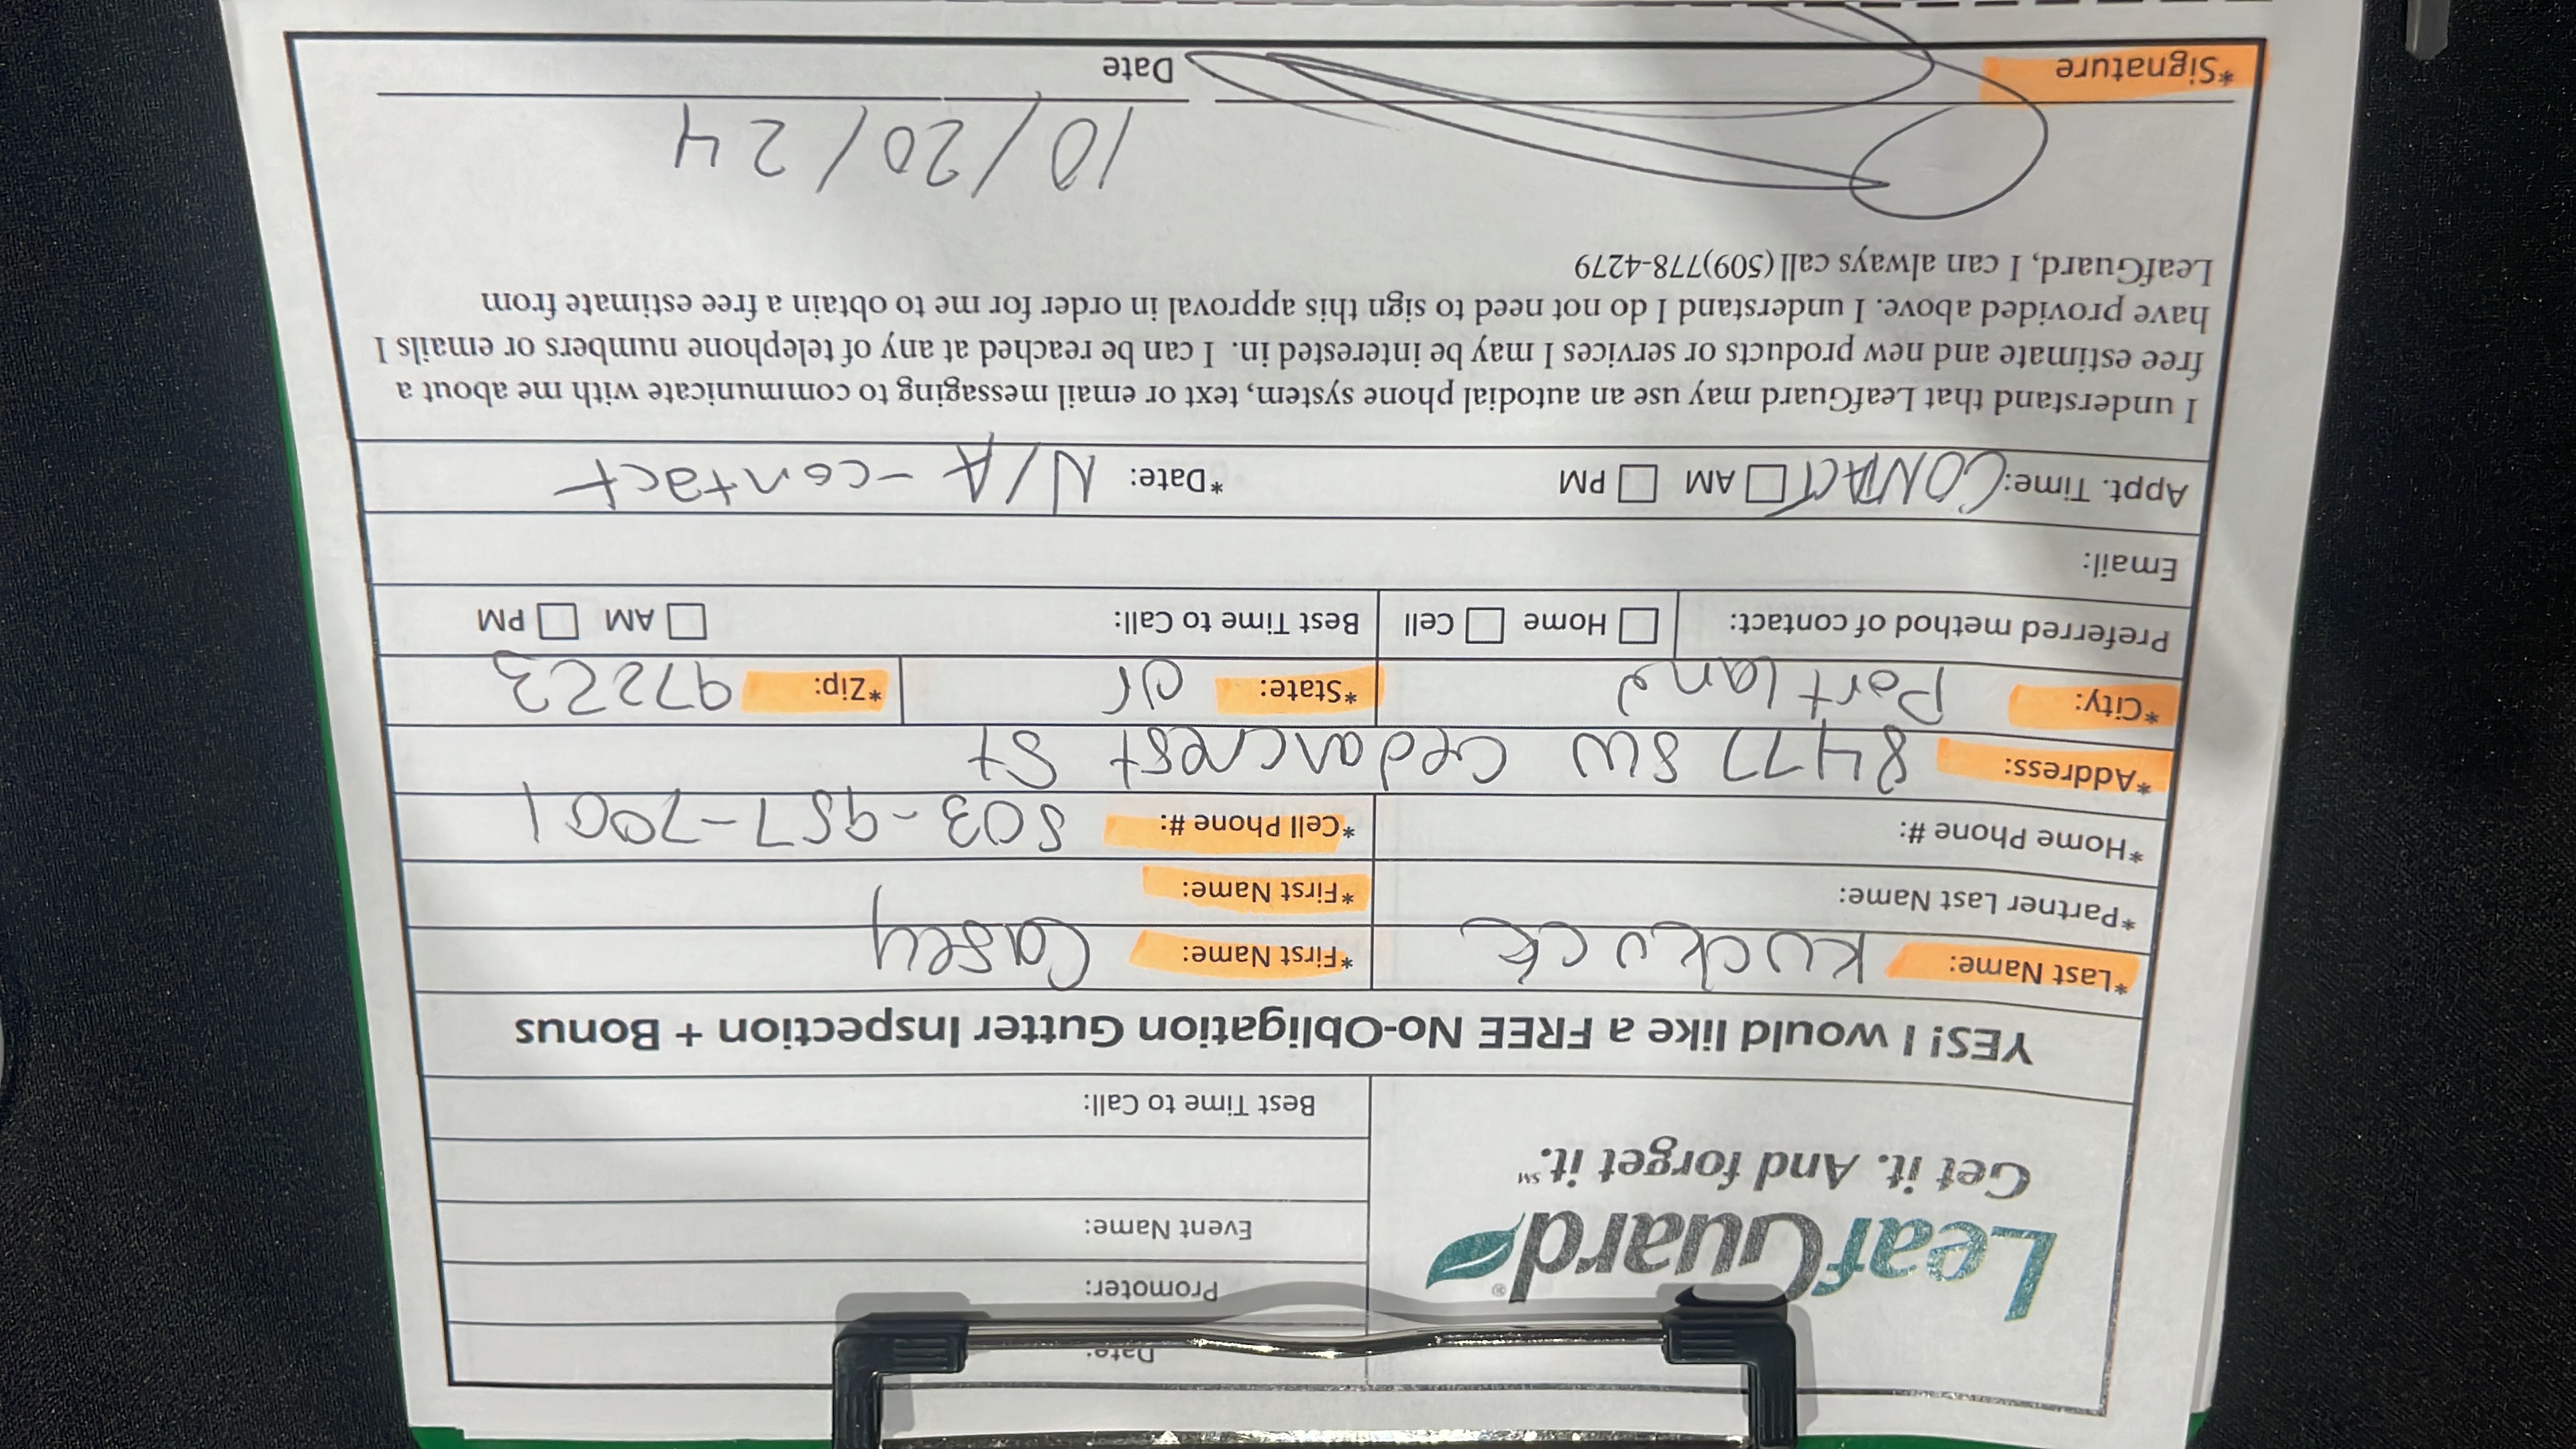 LeafGuard®
Get it. And forget it.℠
Date:
Promoter:
Event Name:
Best Time to Call:
YES! I would like a FREE No-Obligation Gutter Inspection + Bonus
*Last Name: Kuckuck *First Name: Casey
*Partner Last Name: *First Name:
*Home Phone #: *Cell Phone #: 503-957-7001
*Address: 8477 SW Cedarcrest St
*City: Portland *State: or *Zip: 97223
Preferred method of contact: Home Cell Best Time to Call: AM PM
Email:
Appt. Time: CONTACT AM PM *Date: N/A - contact
I understand that LeafGuard may use an autodial phone system, text or email messaging to communicate with me about a
free estimate and new products or services I may be interested in. I can be reached at any of telephone numbers or emails I
have provided above. I understand I do not need to sign this approval in order for me to obtain a free estimate from
LeafGuard, I can always call (509)778-4279
10/20/24
*Signature Date